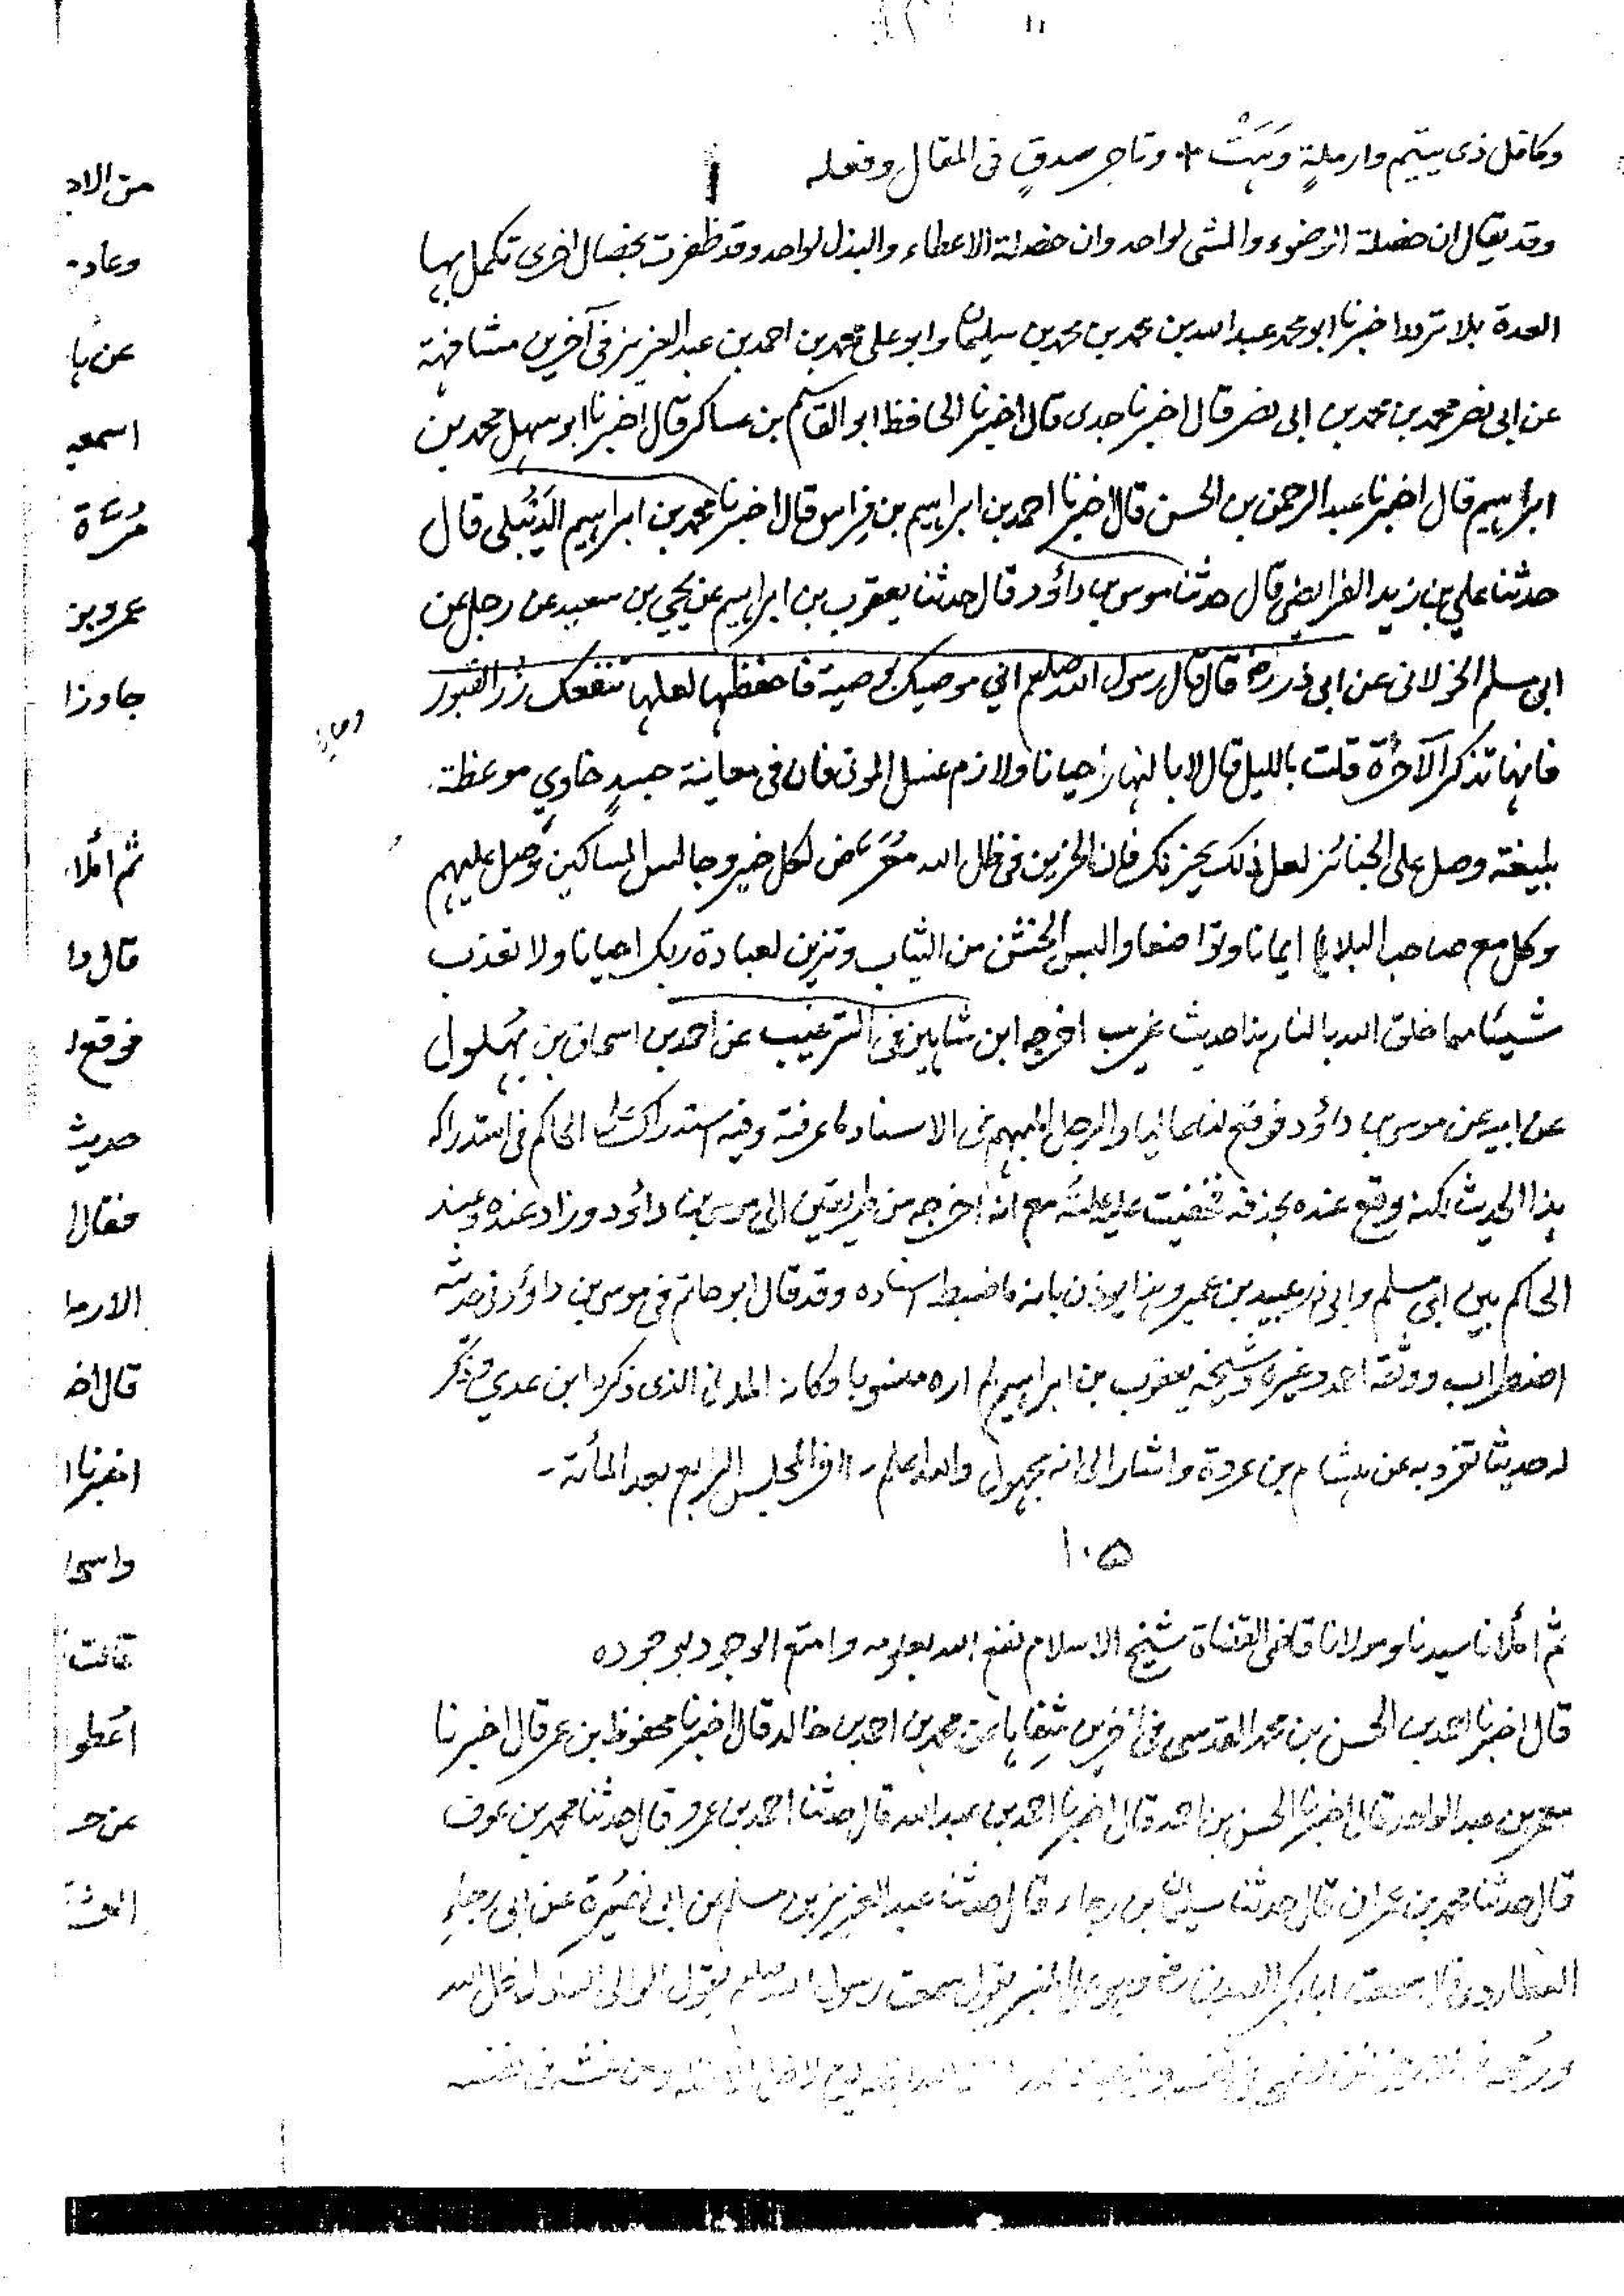 ١١
وكافل ذى يتيم وارملةٍ وَهَتْ + وتاجر صدقٍ فى المقال وفعله
وقد يقال ان خصلة الوضوء والمشى لواحد وان خصلة الاعطاء والبذل لواحد وقد ظفرت بخصال اخرى تكمل بها
العدة بلا تردد اخبرنا ابو محمد عبد الله بن محمد بن محمد بن سليمان وابو على محمد بن احمد بن عبد العزيز فى آخرين مشافهة
عن ابى نصر محمد بن محمد بن ابى نصر قال اخبرنا جدى قال اخبرنا الحافظ ابو القاسم بن عساكر قال اخبرنا ابو سهل محمد بن
ابراهيم قال اخبرنا عبد الرحمن بن الحسن قال اخبرنا احمد بن ابراهيم بن فِراس قال اخبرنا محمد بن ابراهيم الدَيْبُلى قال
حدثنا على بن زيد الفرائضى قال حدثنا موسى بن داؤد قال حدثنا يعقوب بن ابراهيم عن يحيى بن سعيد عن رجل عن
ابى مسلم الخولانى عن ابى ذر رضه قال قال رسول الله صلعم انى موصيك بوصية فاحفظها لعلها تنفعك زُر القبور
فانها تذكر الآخرة قلت بالليل قال لا بالنهار احيانا ولازم غسل الموتى فان فى معاينة جسدٍ خاوٍى موعظة
بليغة وصل على الجنائز لعل ذلك يحزنك فان الحزين فى ظل الله مُعَرَّض لكل خير وجالس المساكين وصل عليهم
وكل مع صاحب البلاء ايمانا وتواضعا والبس الخشن من الثياب وتزين لعبادة ربك احيانا ولا تعذب
شيئا مما خلق الله بالنار هذا حديث غريب اخرجه ابن شاهين فى الترغيب عن احمد بن اسحاق بن بهلول
عن ابيه عن موسى بن داؤد فوقع لنا عاليا والرجل المبهم فى الاسناد ما عرفته وفيه استدراك على الحاكم فى استدراكه
هذا الحديث لكنه وقع عنده بحذفه فخفيت عليه علته مع انه اخرجه من طريقين الى موسى بن داؤد وزاد عنده وعند
الحاكم بين ابى مسلم وابى ذر عبيد بن عمير وهذا يوذن بانه ما ضبط اسناده وقد قال ابو حاتم فى موسى بن داؤد فى حديثه
اضطراب ووثقه احمد وغيره وشيخه يعقوب بن ابراهيم لم اره منسوبا وكانه المدنى الذى ذكره ابن عدي وذكر
له حديثا تفرد به عن هشام بن عروة واشار الى انه مجهول والله اعلم - آخر المجلس الرابع بعد المأئة -
١٠٥
ثم أملانا سيدنا ومولانا قاضى القضاة شيخ الاسلام نفع الله بعلومه وامتع الوجود بوجوده
قال اخبرنا احمد بن الحسن بن محمد القدسى فى آخرين شفاها عن محمد بن احمد بن خالد قال اخبرنا محفوظ بن عمر قال اخبرنا
معمر بن عبد الواحد قال اخبرنا الحسن بن احمد قال اخبرنا احمد بن عبد الله قال حدثنا احمد بن عمرو قال حدثنا محمد بن عوف
قال حدثنا محمد بن عمران قال حدثنا سليمان بن رجاء قال حدثنا عبد العزيز بن مسلم عن ابى نُصَيرة عن ابى رجاءٍ
العطاردى قال سمعت ابا بكر الصديق رضه وهو على المنبر يقول سمعت رسول الله صلعم يقول الوالى العادل ظل الله
من الاد
وعاد
عن با
اسمعيـ
مُرّة
عمرو بن
جاوزا
ثم أملا
قال حد
فوقع لـ
حديث
فقال
الارحا
قال اخـ
اخبرنا ا
واسحا
قالت
اعطوا
عن حـ